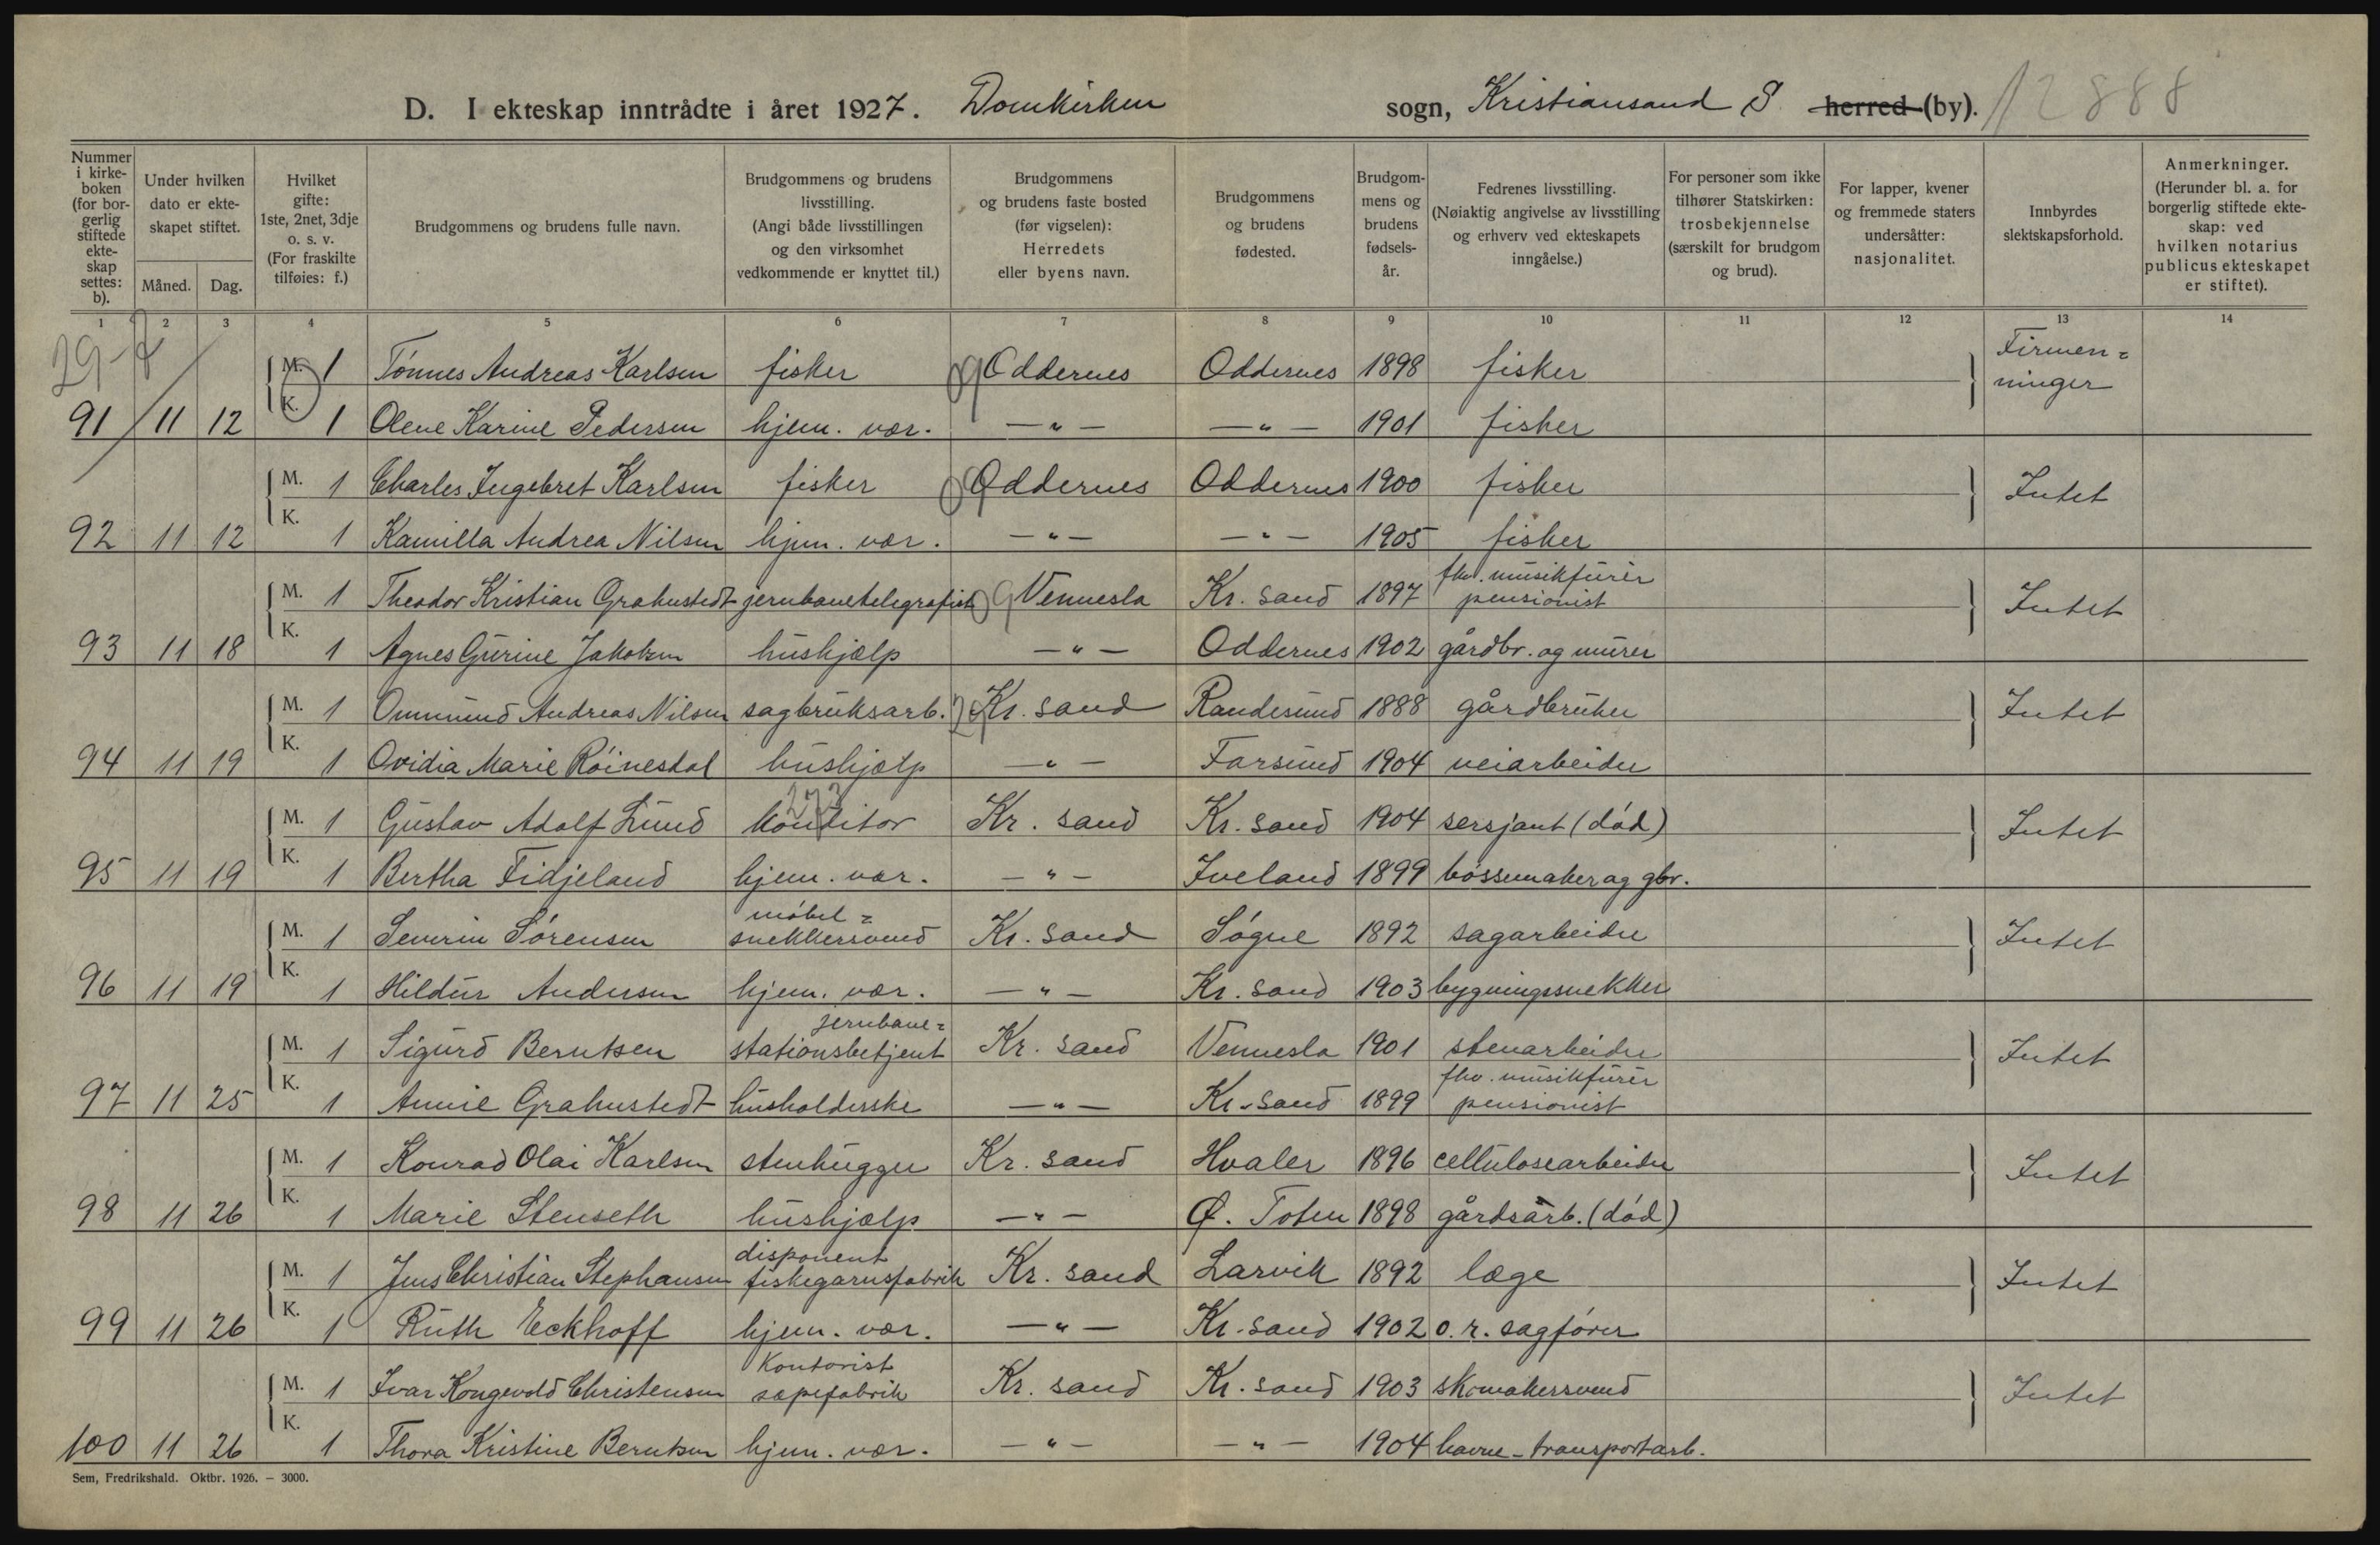 D. I ekteskap inntrådte i året 1927. Domkirken sogn, Kristiansand S. herred (by). 12888
Nummer i kirkeboken (for borgerlig stiftede ekteskap settes: b).
Under hvilken dato er ekteskapet stiftet.
Måned. Dag.
Hvilket gifte: 1ste, 2net, 3dje o. s. v. (For fraskilte tilføies: f.)
Brudgommens og brudens fulle navn.
Brudgommens og brudens livsstilling. (Angi både livsstillingen og den virksomhet vedkommende er knyttet til.)
Brudgommens og brudens faste bosted (før vigselen): Herredets eller byens navn.
Brudgommens og brudens fødested.
Brudgommens og brudens fødselsår.
Fedrenes livsstilling. (Nøiaktig angivelse av livsstilling og erhverv ved ekteskapets inngåelse.)
For personer som ikke tilhører Statskirken: trosbekjennelse (særskilt for brudgom og brud).
For lapper, kvener og fremmede staters undersåtter: nasjonalitet.
Innbyrdes slektskapsforhold.
Anmerkninger. (Herunder bl. a. for borgerlig stiftede ekteskap: ved hvilken notarius publicus ekteskapet er stiftet).
1 2 3 4 5 6 7 8 9 10 11 12 13 14
M. 1 Tønnes Andreas Karlsen fisker Oddernes Oddernes 1898 fisker Firmenninger
91 11 12 K. 1 Olene Karine Pedersen hjem. vær. —"— —"— 1901 fisker
M. 1 Charles Ingebret Karlsen fisker Oddernes Oddernes 1900 fisker Intet
92 11 12 K. 1 Kamilla Andrea Nilsen hjem. vær. —"— —"— 1905 fisker
M. 1 Theodor Kristian Grahnstedt jernbanetelegrafist Vennesla Kr. sand 1897 fhv. musikfurér pensionist Intet
93 11 18 K. 1 Agnes Gurine Jakobsen hushjælp —"— Oddernes 1902 gårdbr. og murer
M. 1 Ommund Andreas Nilsen sagbruksarb. Kr. sand Randesund 1888 gårdbruker Intet
94 11 19 K. 1 Ovidia Marie Røinesdal hushjælp —"— Farsund 1904 veiarbeider
M. 1 Gustav Adolf Lund konditor Kr. sand Kr. sand 1904 sersjant (død) Intet
95 11 19 K. 1 Bertha Fidjeland hjem. vær. —"— Iveland 1899 bøssemaker og gbr.
M. 1 Severin Sørensen møbel=snekkersvend Kr. sand Søgne 1892 sagarbeider Intet
96 11 19 K. 1 Hildur Andersen hjem. vær. —"— Kr. sand 1903 bygningssnekker
M. 1 Sigurd Berntsen jernbane=stationsbetjent Kr. sand Vennesla 1901 stenarbeider Intet
97 11 25 K. 1 Annie Grahnstedt husholderske —"— Kr. sand 1899 fhv. musikfurér pensionist
M. 1 Konrad Olai Karlsen stenhugger Kr. sand Hvaler 1896 cellulosearbeider Intet
98 11 26 K. 1 Marie Stenseth hushjælp —"— Ø. Toten 1898 gårdsarb. (død)
M. 1 Jens Christian Stephansen disponent fiskegarnsfabrik Kr. sand Larvik 1892 læge Intet
99 11 26 K. 1 Ruth Eckhoff hjem. vær. —"— Kr. sand 1902 o. r. sagfører
M. 1 Ivar Kongevold Christensen Kontorist sæpefabrik Kr. sand Kr. sand 1903 skomakersvend Intet
100 11 26 K. 1 Thora Kristine Berntsen hjem. vær. —"— —"— 1904 havne-transportarb.
Sem, Fredrikshald. Oktbr. 1926. — 3000.